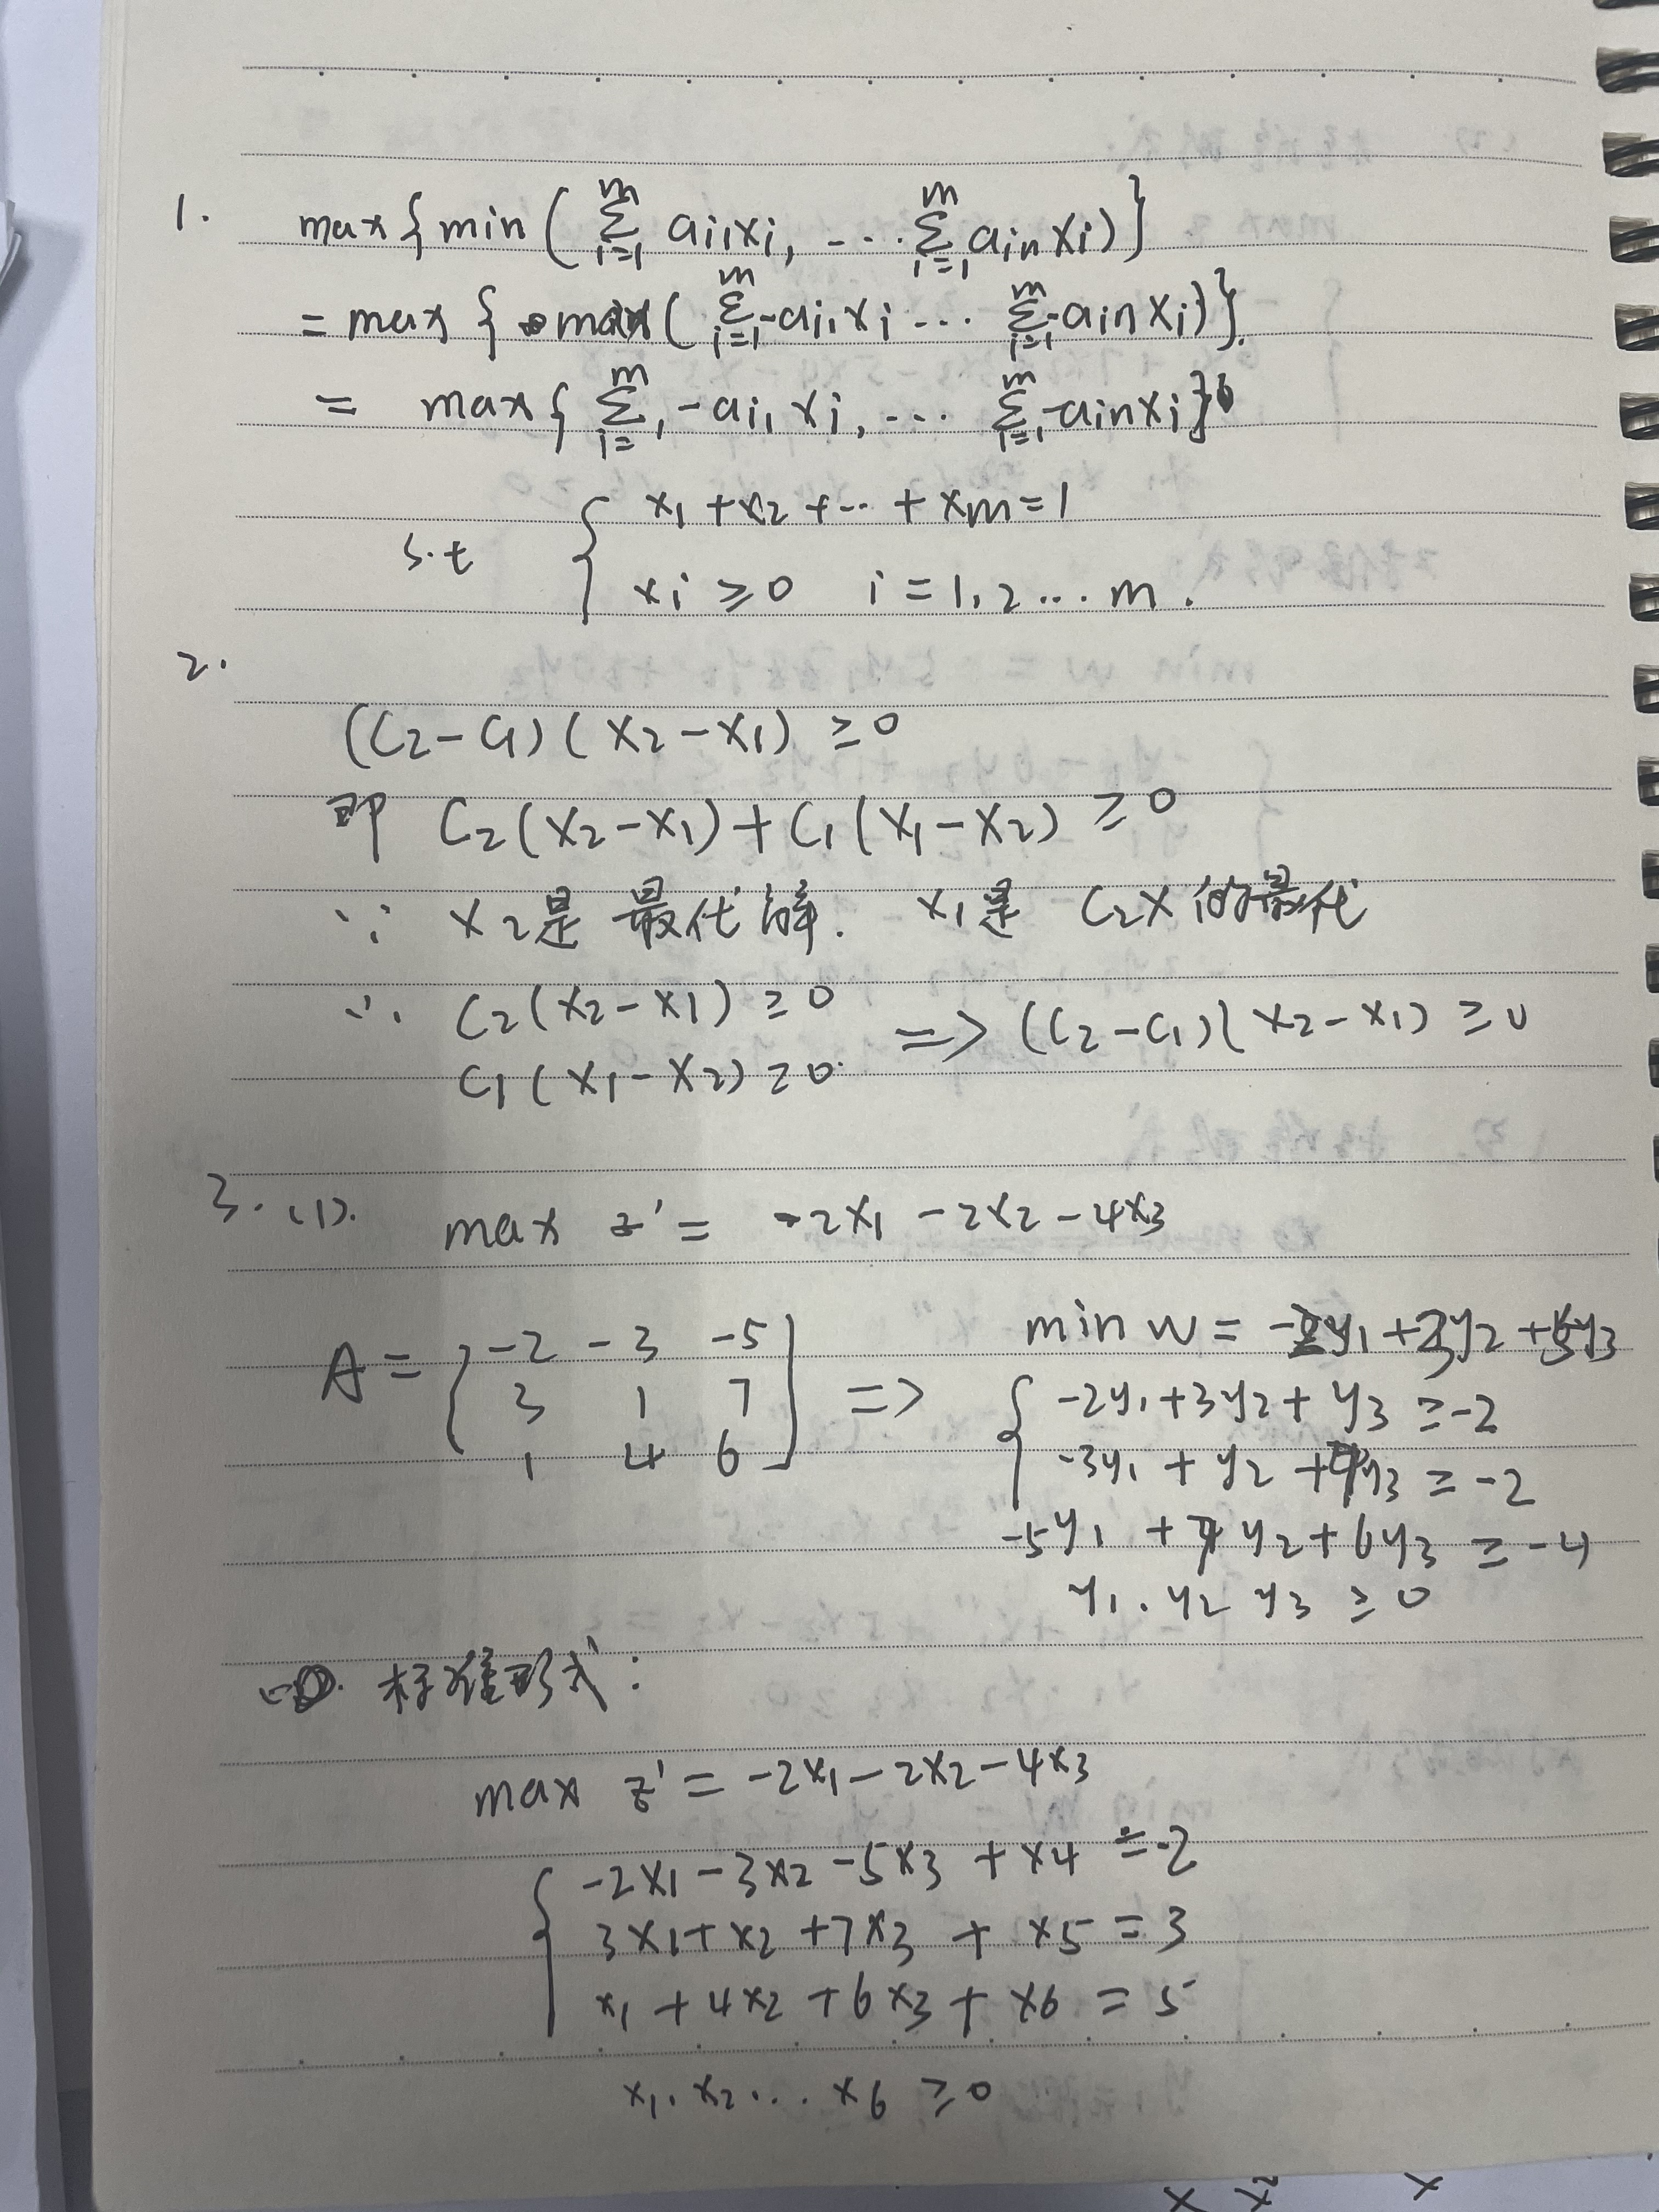 1. max{min(∑_{i=1}^{m} a_{i1}x_i, ... ∑_{i=1}^{m} a_{in}x_i)}
= max{ max(∑_{i=1}^{m} -a_{i1}x_i ... ∑_{i=1}^{m} -a_{in}x_i)}.
= max{∑_{i=1}^{m} -a_{i1}x_i, ... ∑_{i=1}^{m} -a_{in}x_i}
s.t { x1 + x2 + ... + xm = 1
xi ≥ 0 i = 1, 2 ... m.
2.
(C2 - C1)(X2 - X1) ≥ 0
即 C2(X2 - X1) + C1(X1 - X2) ≥ 0
∵ X2是最优解. X1是 C2X 的最优
∴ C2(X2 - X1) ≥ 0
C1(X1 - X2) ≥ 0. => (C2 - C1)(X2 - X1) ≥ 0
3. (1). max z' = -2x1 - 2x2 - 4x3
min w = -2y1 + 3y2 + 5y3
A = [ -2 -3 -5
3 1 7
1 4 6 ] => { -2y1 + 3y2 + y3 ≥ -2
-3y1 + y2 + 4y3 ≥ -2
-5y1 + 7y2 + 6y3 ≥ -4
y1. y2 y3 ≥ 0
标准形式:
max z' = -2x1 - 2x2 - 4x3
{ -2x1 - 3x2 - 5x3 + x4 = -2
3x1 + x2 + 7x3 + x5 = 3
x1 + 4x2 + 6x3 + x6 = 5
x1. x2 ... x6 ≥ 0